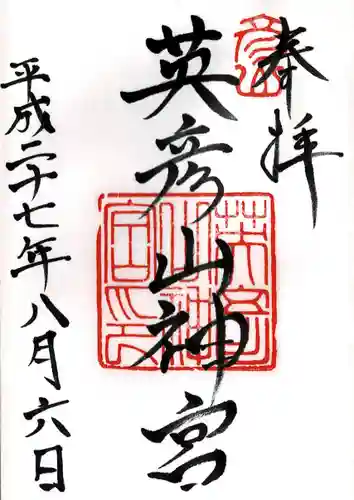 奉拝
英彦山神宮
平成二十七年八月六日
英彦山神宮印